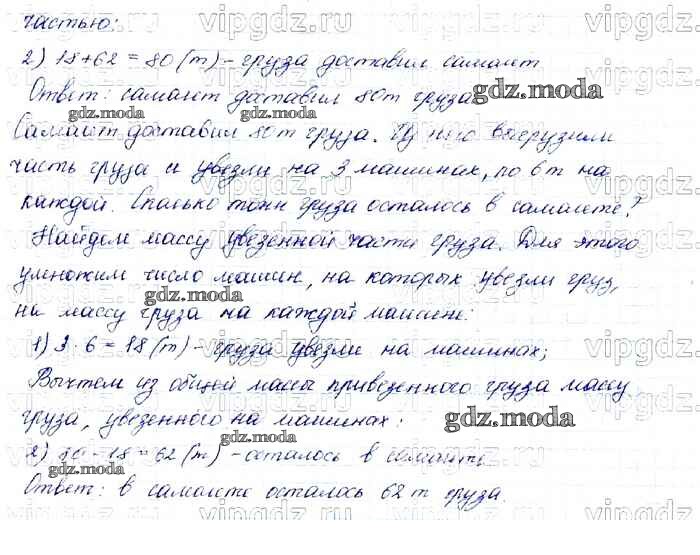 частью:
2) 18+62=80 (т) - груза доставил самолет
Ответ: самолет доставил 80т груза.
Самолет доставил 80 т груза. Из него выгрузили
часть груза и увезли на 3 машинах, по 6 т на
каждой. Сколько тонн груза осталось в самолете?
Найдем массу увезенной части груза. Для этого
умножим число машин, на которых увезли груз,
на массу груза на каждой машине:
1) 3·6=18 (т) - груза увезли на машинах;
Вычтем из общей массы привезенного груза массу
груза, увезенного на машинах:
2) 80-18=62 (т) - осталось в самолете
Ответ: в самолете осталось 62 т груза.
gdz.moda
vipgdz.ru